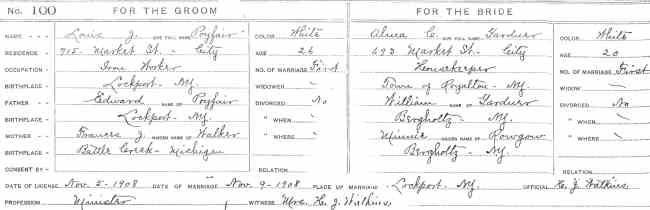 No. 100 FOR THE GROOM FOR THE BRIDE
NAME Louis J. AND FULL NAME Poyfair COLOR White Alma C. AND FULL NAME Gardner COLOR White
RESIDENCE 715 Market St. - City AGE 26 693 Market St. - City AGE 20
OCCUPATION Iron Worker NO. OF MARRIAGE First Housekeeper NO. OF MARRIAGE First
BIRTHPLACE Lockport - NY. WIDOWER Town of Royalton - NY. WIDOW
FATHER Edward NAME OF Poyfair DIVORCED No William NAME OF Gardner DIVORCED No
BIRTHPLACE Lockport - NY. " WHEN Bergholtz - NY. " WHEN
MOTHER Frances J. MAIDEN NAME OF Walker " WHERE Minnie MAIDEN NAME OF " WHERE
BIRTHPLACE Battle Creek - Michigan Bergholtz - NY.
CONSENT BY RELATION RELATION
DATE OF LICENSE Nov. 5 - 1908 DATE OF MARRIAGE Nov. 9 - 1908 PLACE OF MARRIAGE Lockport, NY. OFFICIAL H. J. Watkins
PROFESSION Minister WITNESS Mrs. H. J. Watkins